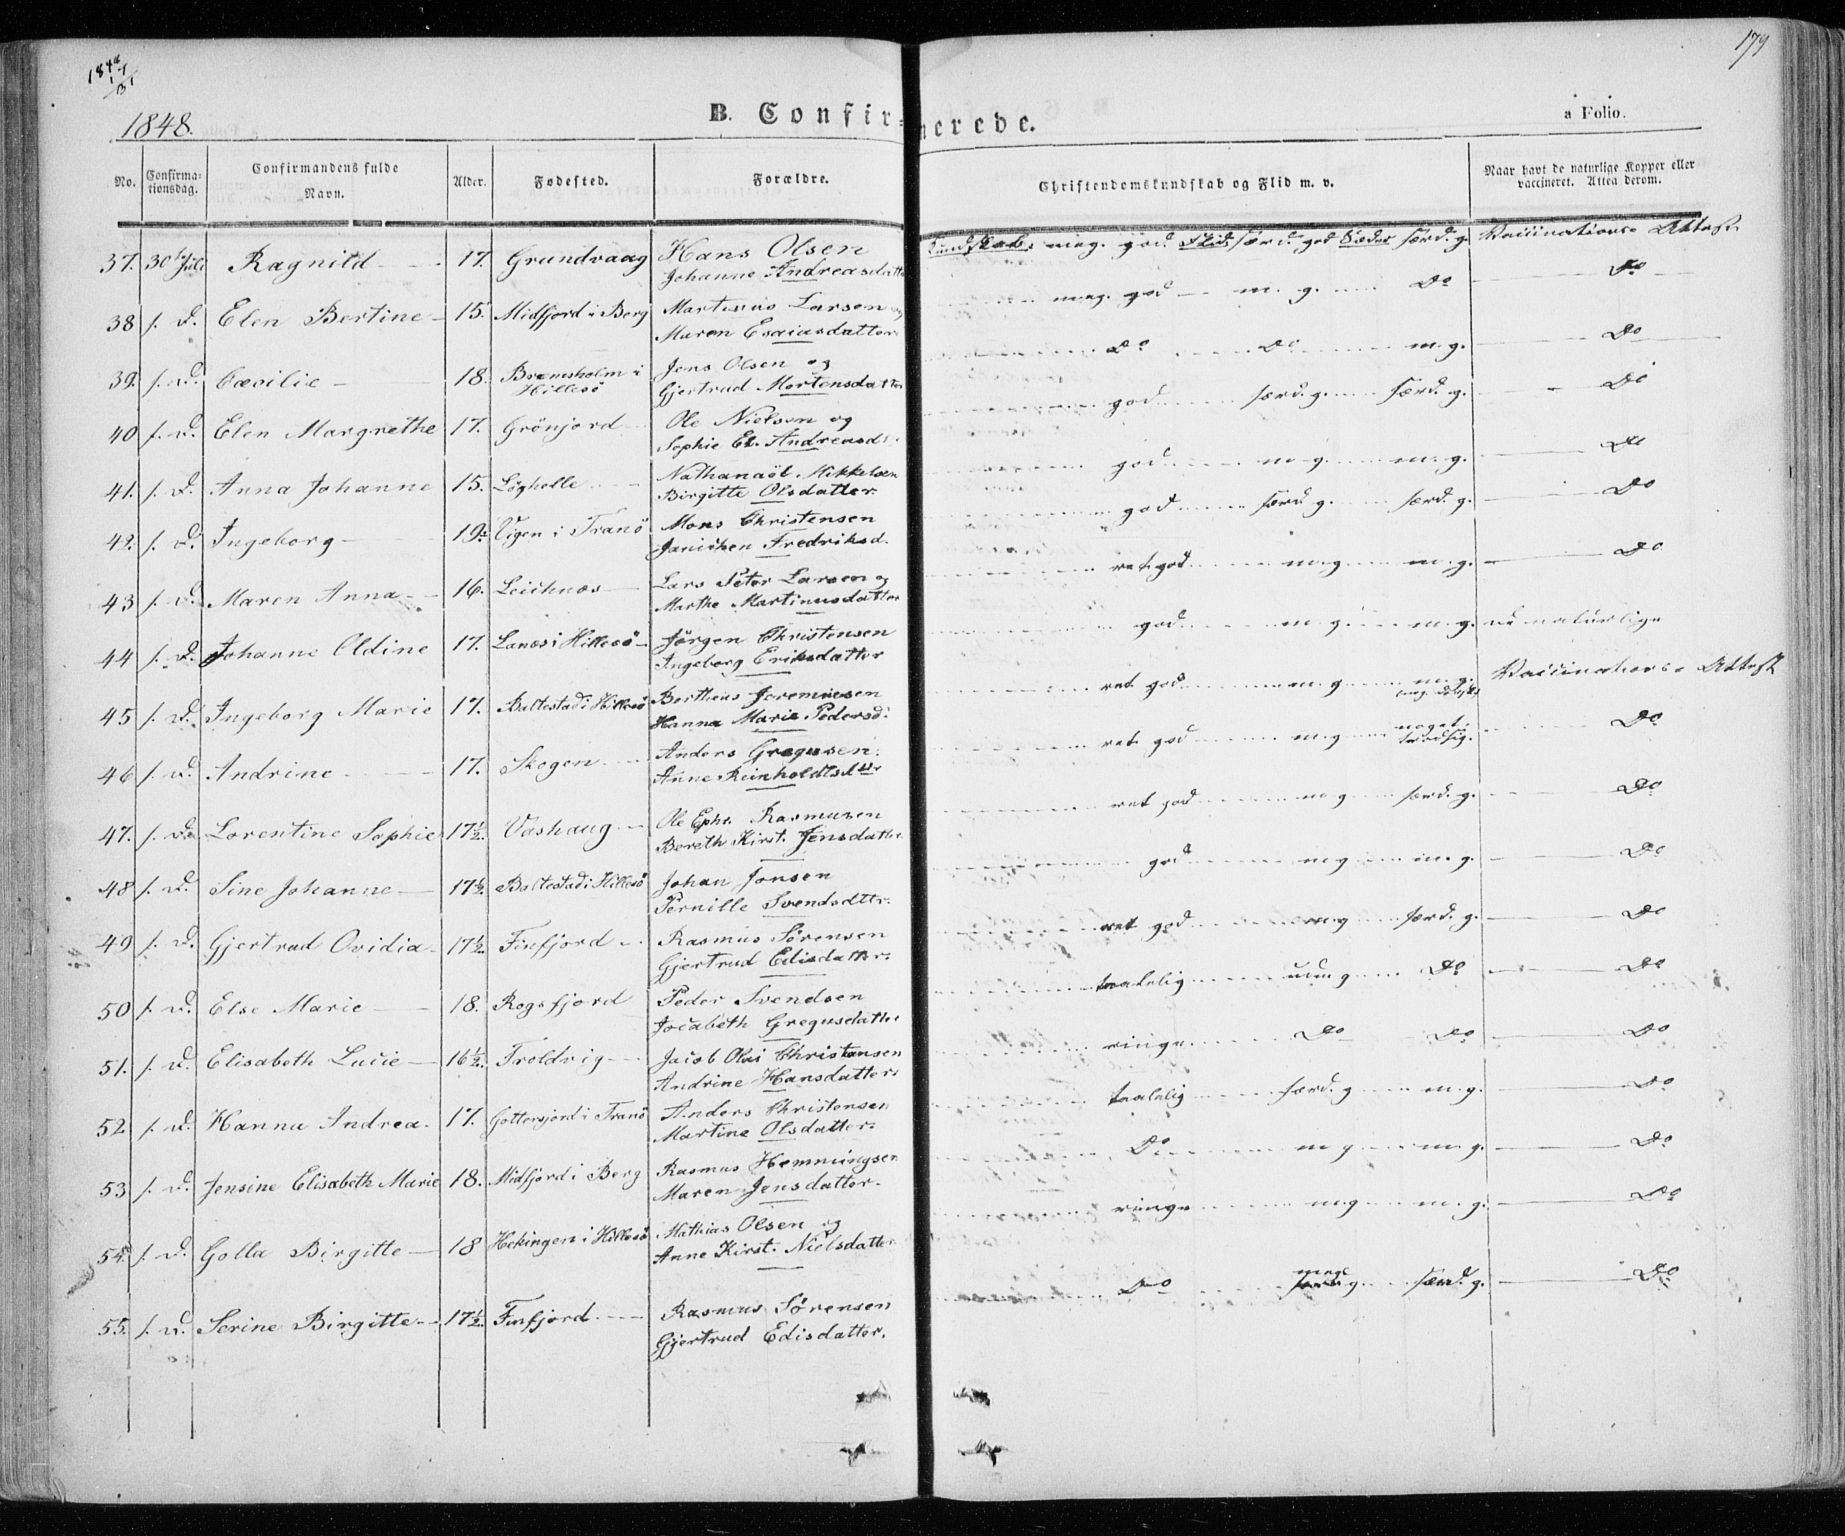 179
1848.
B. Confirmerede.
a Folio.
No. Confirmationsdag. Confirmandens fulde Navn. Alder. Fødested. Forældre. Christendomskundskab og Flid m. v. Naar havt de naturlige Kopper eller vaccineret. Attea derom.
37. 30te Juli Ragnild 17. Grundvaag Hans Olsen Kundskab: meg. god Flid: særd. god Sæder særd. g. Vaccinations Attest
Johanne Andreasdatter
38 s. D. Elen Bertine 15. Midfjord i Berg Martinus Larsen og meg. god m. g. Do Do
Maren Esaiasdatter
39. s. D. Cæcilie 18. Bremsholm i Hillesö Jens Olsen og Do Do m. g. Do
Gjertrud Mortensdatter
40 s. D. Elen Margrethe 17. Grönjord Ole Nielsen og god særd. g. særd. g. Do
Sophie El. Andreasd.
41. s. D. Anna Johanne 15. Løgholle Nathanaël Mikkelsen god m. g. m. g. Do
Birgitte Olsdatter
42. s. D. Ingeborg 19. Vigen i Tranö Mons Christensen god særd. g. særd. g. Do
Janichen Fredriksd.
43 s. D. Maren Anna 16. Leichnæs Lars Peter Larsen og ret god m. g. m. g. Do
Marthe Martinusdatter
44 s. D. Johanne Oldine 17. Lanæs i Hillesö Jørgen Christensen god m. g. m. g. de naturlige
Ingeborg Eriksdatter
45 s. D. Ingeborg Marie 17. Baltestad i Hillesö Bertheus Jeremiesen ret god m. g. m. g. Vaccinations Attest
Hanna Marie Pedersd.
46 s. D. Andrine 17. Skogen Anders Gregusen ret god m. g. noget Do
Anne Reinholdtsdtr
47. s. Do Lorentine Sophie 17½. Vashaug Ole Ephr. Rasmusen ret god m. g. særd. g. Do
Bereth Kirst. Jensdatter
48 s. D. Sine Johanne 17½. Baltestad i Hillesö Johan Jonsen god m. g. m. g. Do
Pernille Svendsdttr.
49 s. D. Gjertrud Ovidia 17½. Finfjord Rasmus Sørensen ret god m. g. særd. g. Do
Gjertrud Edisdatter.
50 s. D. Else Marie 18. Rogsfjord Peder Svendsen taalelig udm. g. Do Do
Jocabeth Gregusdatter
51. s. D. Elisabeth Lucie 16½. Troldvig Jacob Olai Christensen ringe Do Do Do
Andrine Hansdatter
52 s. D. Hanna Andrea 17. Gottersjord i Tranö Anders Christensen taalelig særd. g. m. g. Do
Martine Olsdatter.
53 s. D. Jensine Elisabeth Marie 18. Midfjord i Berg Rasmus Hemmingsen Do m. g. m. g. Do
Maren Jensdatter.
54 s. D. Golla Birgitte 18 Hekingen i Hillesö Mathias Olsen og ringe m. g. m. g. Do
Anne Kirst. Nielsdatter
55. s. D. Serine Birgitte 17½. Finfjord Rasmus Sörensen Do meg g. særd. g. Do
Gjertrud Edisdatter.